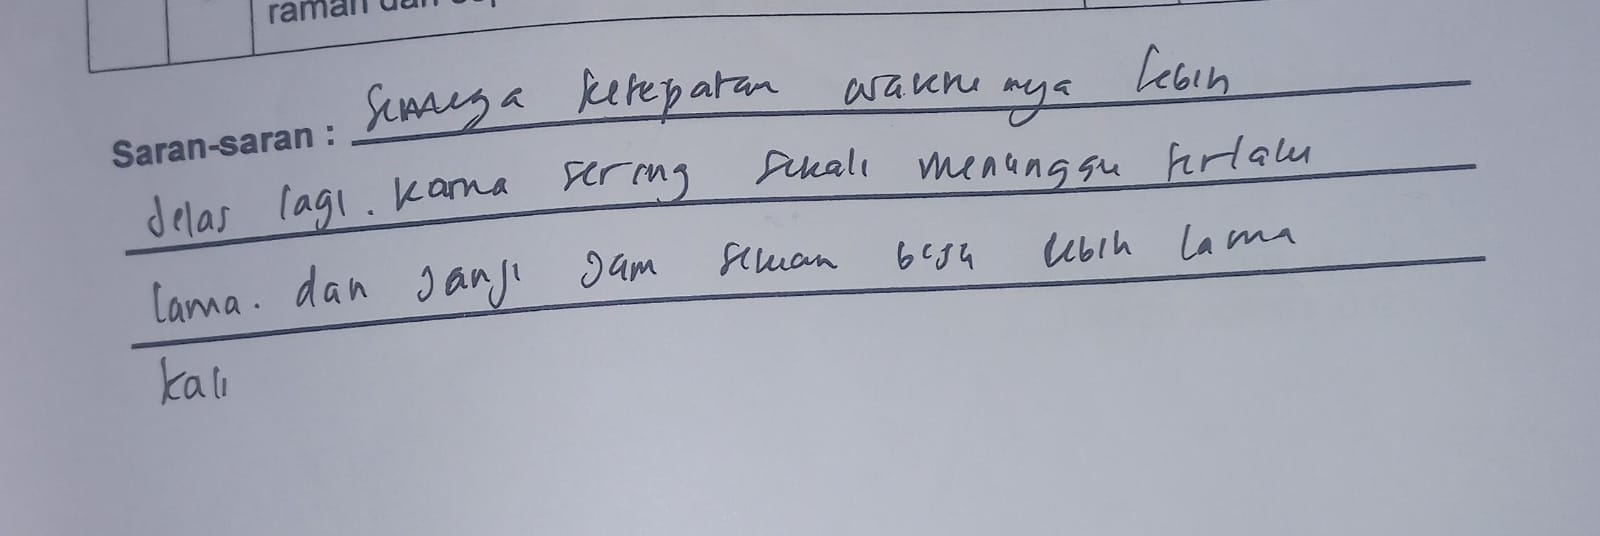 raman dan
Saran-saran : Semoga ketepatan waktu nya lebih
Jelas lagi. Karna sering sekali menunggu terlalu
lama. dan Janji Jam sekian bisa lebih lama
kali